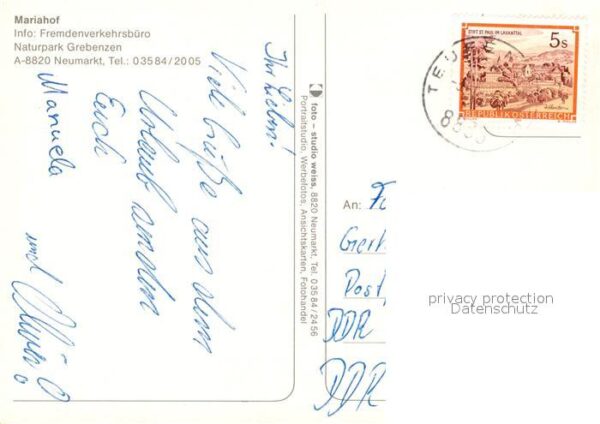 Mariahof
Info: Fremdenverkehrsbüro
Naturpark Grebenzen
A-8820 Neumarkt, Tel.: 03584/2005
Ihr Lieben!
Viele Grüße aus dem
Urlaub senden
Euch
Manuela
und
foto – studio weiss, 8820 Neumarkt, Tel. 03584/2456
Portraitstudio, Werbefotos, Ansichtskarten, Fotohandel
STIFT ST. PAUL IM LAVANTTAL
5s
REPUBLIK ÖSTERREICH
TEU
88
An:
Gerh
Post
DDR
DDR
privacy protection
Datenschutz